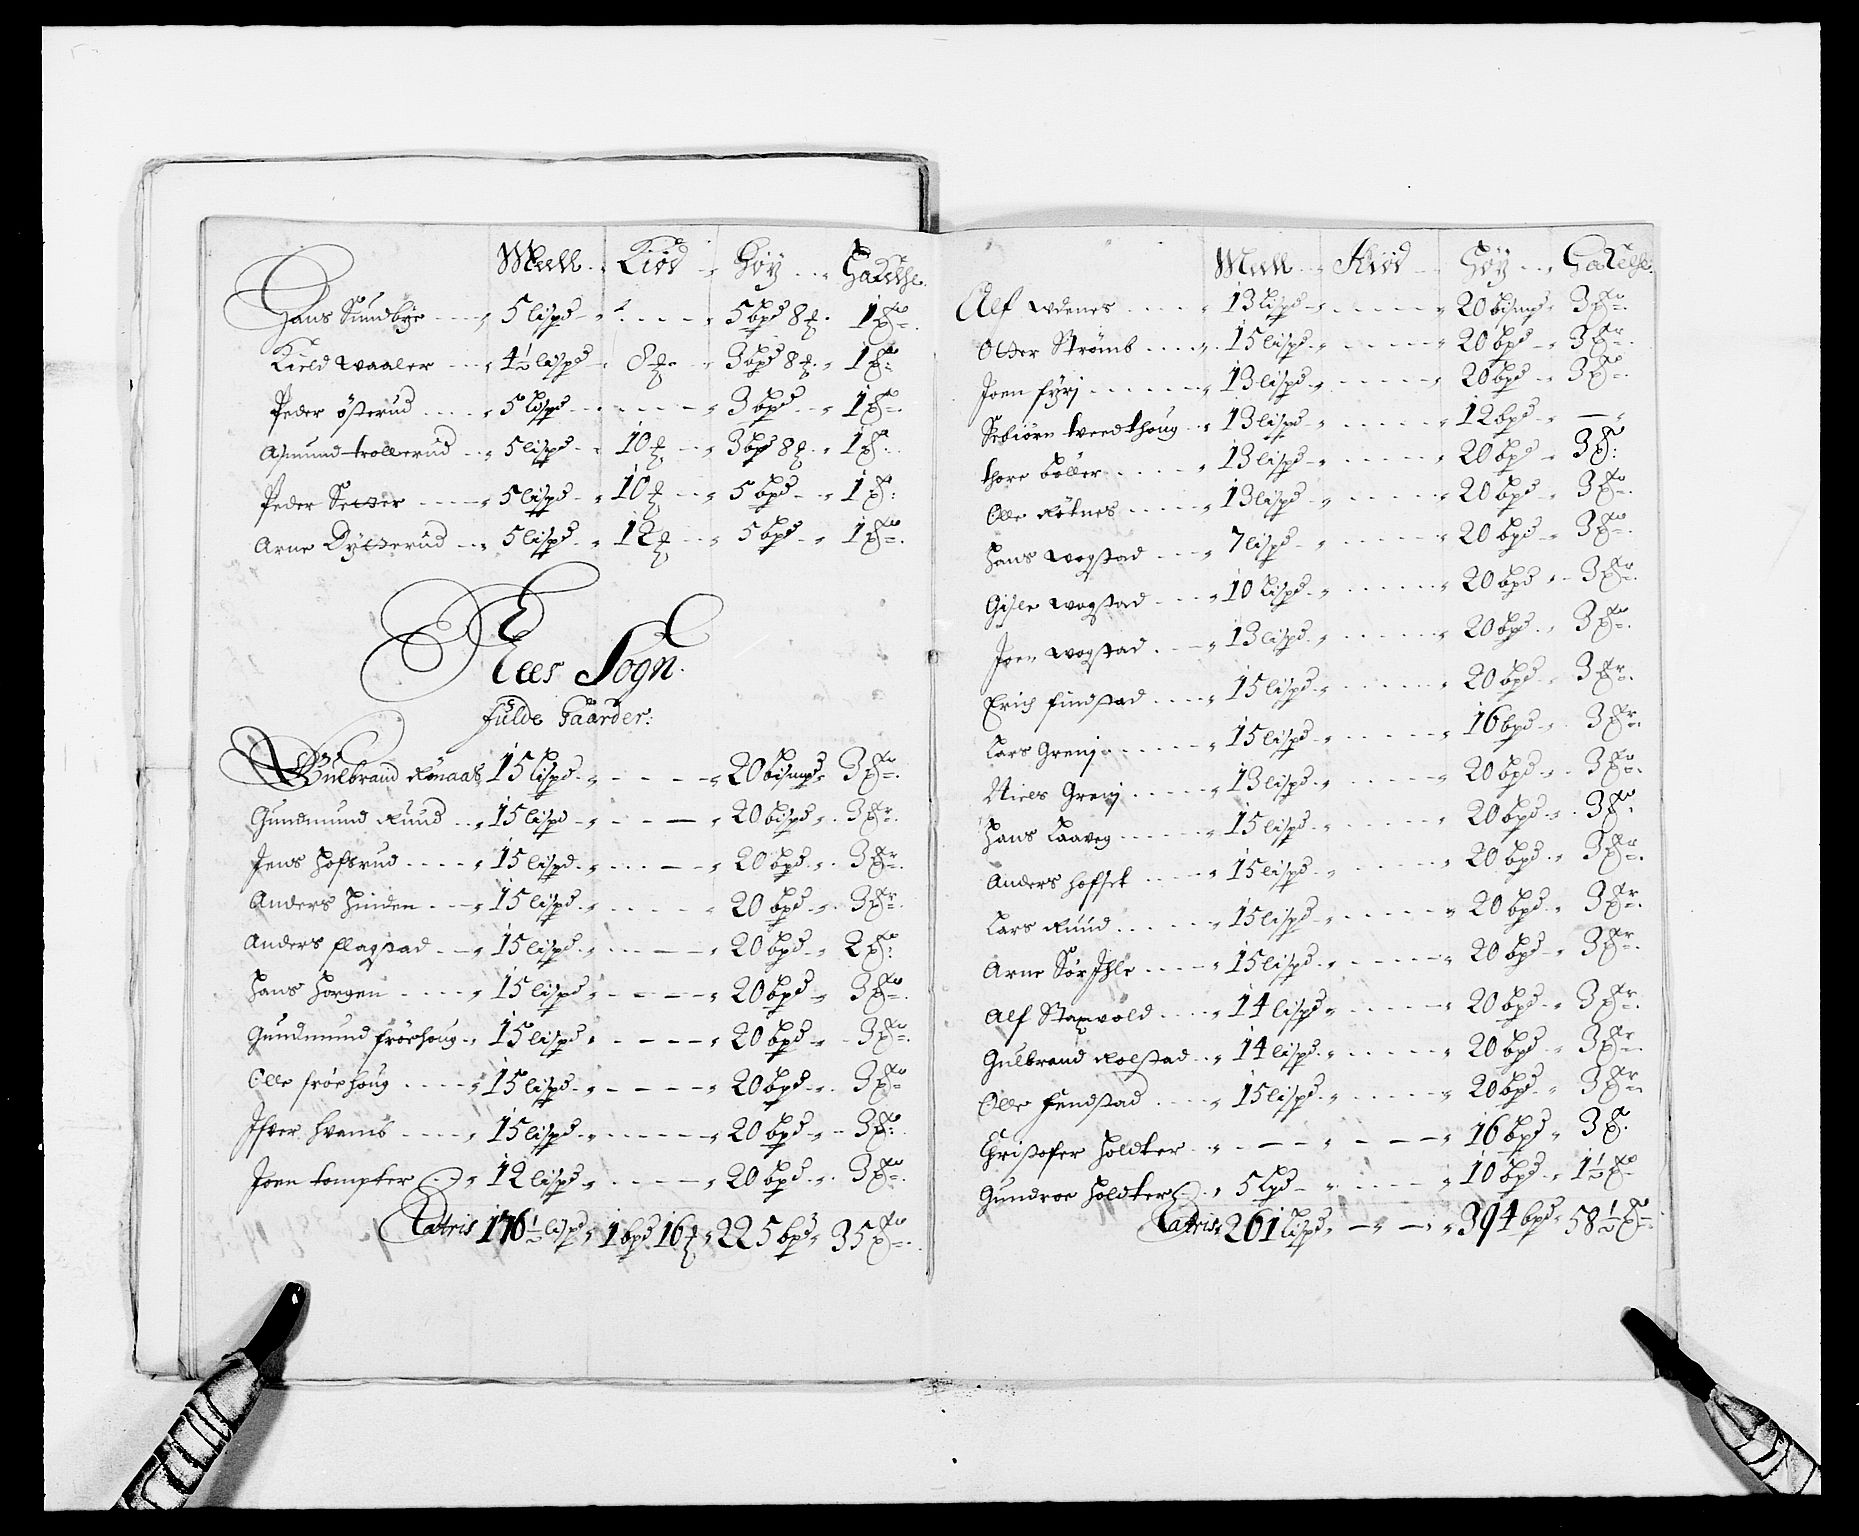 Meell Kiød Høy Hackelse
Hans Sundbye 5 lispd 5 bpd 8 ℔ 1
Kield Waaler 4½ lispd 8 ℔ 3 bpd 8 ℔ 1
Peder Østerud 5 lispd 3 bpd 1
Asmund trollerud 5 lispd 10 ℔ 3 bpd 8 ℔ 1
Peder Setter 5 lispd 10 ℔ 5 bpd 1
Arne Dytterud 5 lispd 12 ℔ 5 bpd 1
Ees Sogn
fulde Gaarder:
Gulbrand Rønaas 15 lispd 20 bismpd 3
Gundmund Ruud 15 lispd 20 bispd 3
Jens Hofsrud 15 lispd 20 bpd 3
Anders 15 lispd 20 bpd 3
Anders flagstad 15 lispd 20 bpd 2
Hans Horgen 15 lispd 20 bpd 3
Gundmund frøehoug 15 lispd 20 bpd 3
Olle frøehoug 15 lispd 20 bpd 3
Ifver Hvambs 15 lispd 20 bpd 3
Joen tompter 12 lispd 20 bpd 3
Latris 176½ lispd 1 bpd 16 ℔ 225 bpd 35
Meell Kiød Høy Hackelse
Alf Udenes 13 lispd 20 bismpd 3
Otter Strømb 15 lispd 20 bpd 3
Joen fyri 13 lispd 20 bpd 3
tveedthoug 13 lispd 12 bpd
thore Bøller 13 lispd 20 bpd 3
Olle Røtnes 13 lispd 20 bpd 3
Hans Wogstad 7 lispd 20 bpd 3
Gisle Wogstad 10 lispd 20 bpd 3
Joen Wogstad 13 lispd 20 bpd 3
Erich findstad 15 lispd 20 bpd 3
Lars Grenj 15 lispd 16 bpd 3
Niels Grenj 13 lispd 20 bpd 3
Hans Laaveg 15 lispd 20 bpd 3
Anders Hofset 15 lispd 20 bpd 3
Lars Ruud 15 lispd 20 bpd 3
Arne Sør Ihle 15 lispd 20 bpd 3
Alf Stapvold 14 lispd 20 bpd 3
Gulbrand Rolstad 14 lispd 20 bpd 3
Olle fendstad 15 lispd 20 bpd 3
Christofer Holdter 16 bpd 3
Gundroe Holdter 5 Lpd 10 bpd 1½
Latris 261 lispd 394 bpd 58½